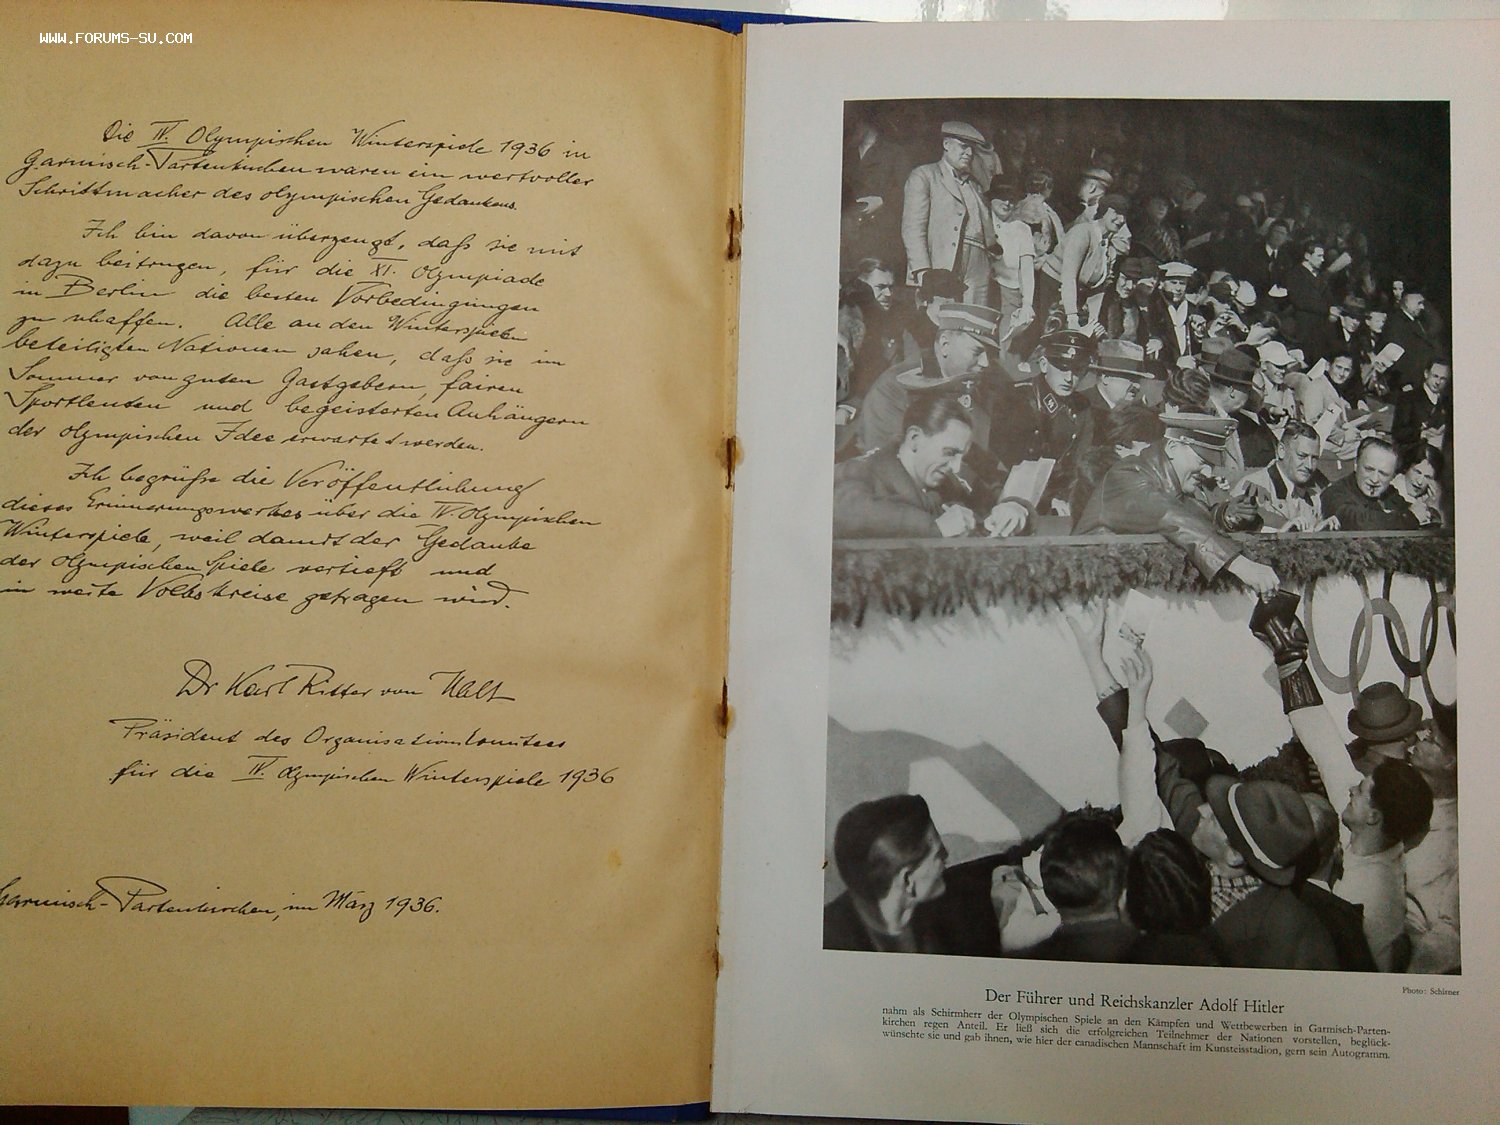 www.FORUMS-SU.COM
Die IV. Olympischen Winterspiele 1936 in
Garmisch-Partenkirchen waren ein wertvoller
Schrittmacher des olympischen Gedankens.
Ich bin davon überzeugt, daß sie mit
dazu beitrugen, für die XI. Olympiade
in Berlin die besten Vorbedingungen
zu schaffen. Alle an den Winterspielen
beteiligten Nationen sahen, daß sie im
Sommer von guten Gastgebern, fairen
Sportleuten und begeisterten Anhängern
der olympischen Idee erwartet werden.
Ich begrüße die Veröffentlichung
dieses Erinnerungswerkes über die IV. Olympischen
Winterspiele, weil damit der Gedanke
der olympischen Spiele vertieft und
in weite Volkskreise getragen wird.
Dr Karl Ritter von Halt
Präsident des Organisationskomitees
für die IV. Olympischen Winterspiele 1936
Garmisch-Partenkirchen, im März 1936.
Photo: Schirner
Der Führer und Reichskanzler Adolf Hitler
nahm als Schirmherr der Olympischen Spiele an den Kämpfen und Wettbewerben in Garmisch-Parten-
kirchen regen Anteil. Er ließ sich die erfolgreichen Teilnehmer der Nationen vorstellen, beglück-
wünschte sie und gab ihnen, wie hier der canadischen Mannschaft im Kunsteisstadion, gern sein Autogramm.